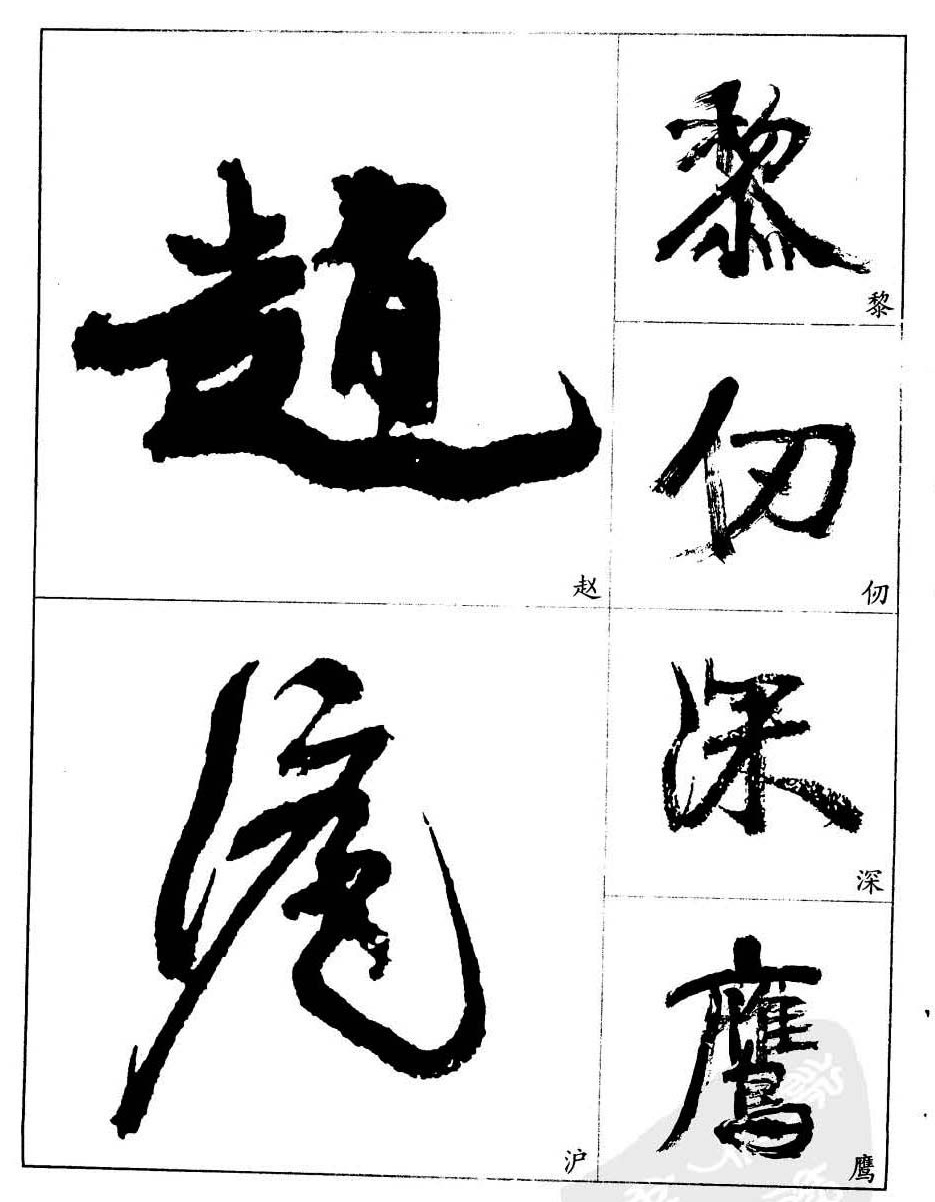 趙
赵
滬
沪
黎
黎
仞
仞
深
深
鷹
鹰